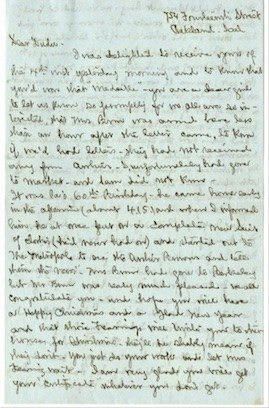 754 Fourteenth Street
Oakland. Cal
Dear Frider-
I was delighted to receive yours of
the 4th inst yesterday morning, and to know that
you'd won that Medaille - you are a dear girl
to let us know so promptly for we all are so in-
terested, that Mrs. Penn was around here less
than an hour after the letter came, to know
if we'd had letters - they had not received
any from Arthur. I unfortunately had gone
to market - and Sam did not know -
It was his 60th Birthday - he came home early
in the afternoon (about 4.15) and when I informed
him, he at once put on a complete new suit
of clothes (he'd never had on) and started out to
the Metropole to see the Arthur Penns and tell
them the news - Mrs. Penn had gone to Berkeley
but Mr Penn was really much pleased. We all
congratulate you - and hope you will have
a Happy Christmas and a Glad New Year
and that these Learnings will invite you to their
house for Christmas. They'll be shabby mean if
they don't. You just do your work and let Mrs.
wait - I am very glad you will get
your Certificate whatever you don't get.